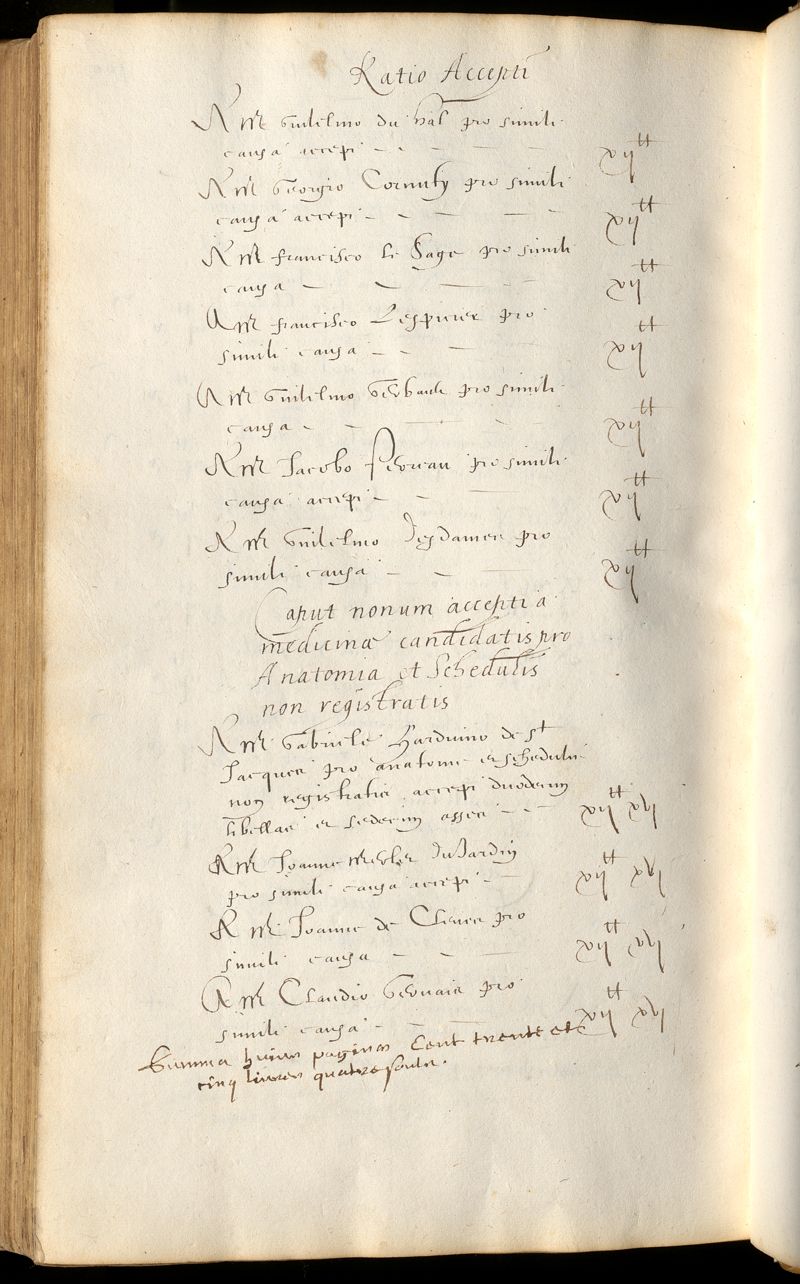 Ratio Accepti
A mro Guilelmo du Val pro simili
causa accepi xij tt
A mro Georgio Cornuty pro simili
causa accepi xij tt
A mro francisco le Sage pro simili
causa xij tt
A mro francisco Lespicier pro
simili causa xij tt
A mro Guilelmo Gerbault pro simili
causa xij tt
A mro Jacobo pro simili
causa accepi xij tt
A mro Guilelmo Desdames pro
simili causa xij tt
Caput nonum accepti a
medicinæ candidatis pro
Anatomia et Schedulis
non registratis
A mro Gabriele Harduino de St
Jacques pro anatome et schedulis
non registratis accepi duodecim
libellas et sedecim asses xij tt xvj
A mro Joanne du Jardin
pro simili causa accepi xij tt xvj
A mro Joanne de Cleves pro
simili causa xij tt xvj
A mro Claudio Gervais pro
simili causa xij tt xvj
Summa huius paginæ Cent trente et
cinq livres quatre soulz.